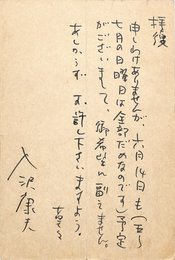 拝復
申しわけありませんが、六月14日も(五〜
七月の日曜日は全部だめなのです)予定
がございまして、御希望に副えません。
あしからず お許し下さいますよう。
入沢康夫